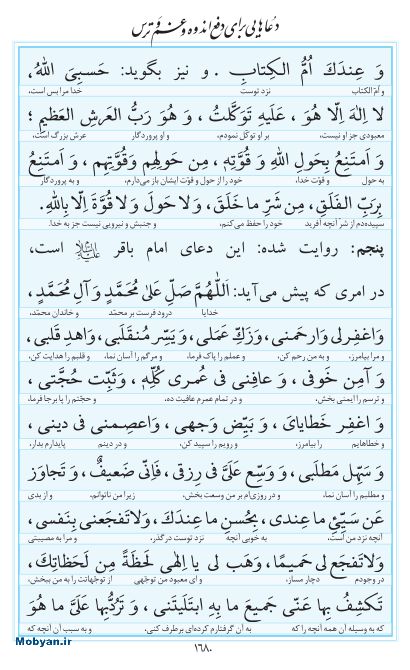 دعاهایی برای دفع اندوه و غم و ترس
وَ عِندَكَ اُمُّ الكِتابِ. و نیز بگوید: حَسبِیَ اللهُ،
و اُمّ الکتاب نزد توست خدا مرا بس است،
لا اِلهَ اِلّا هُوَ ، عَلَیهِ تَوَكَّلتُ ، وَ هُوَ رَبُّ العَرشِ العَظیمِ ؛
معبودی جز او نیست، بر او توکّل نمودم، و او پروردگار عرش بزرگ است،
وَ اَمتَنِعُ بِحَولِ اللهِ وَ قُوَّتِهِ، مِن حَولِهِم وَ قُوَّتِهِم ، وَ اَمتَنِعُ
به حول و قوّت خدا، خود را از حول و قوّت ایشان باز می‌دارم، و به پروردگار
بِرَبِّ الفَلَقِ، مِن شَرِّ ما خَلَقَ، وَ لا حَولَ وَ لا قُوَّةَ اِلّا بِاللهِ.
سپیده‌دم از شر آنچه آفرید خود را حفظ می‌کنم، و جنبش و نیرویی نیست جز به خدا.
پنجم: روایت شده: این دعای امام باقر علیه‌السلام است،
در امری که پیش می‌آید: اَللّهُمَّ صَلِّ عَلی مُحَمَّدٍ وَ آلِ مُحَمَّدٍ،
خدایا درود فرست بر محمّد و خاندان محمّد،
وَ اغفِر لی وَ ارحَمنی، وَ زَكِّ عَمَلی، وَ یَسِّر مُنقَلَبی، وَ اهدِ قَلبی،
و مرا بیامرز، و به من رحم کن، و عملم را پاک فرما، و مرگم را آسان نما، و قلبم را هدایت کن،
وَ آمِن خَوفی ، وَ عافِنی فی عُمری كُلِّهِ، وَ ثَبِّت حُجَّتی ،
و ترسم را ایمنی بخش، و در تمام عمرم عافیت ده، و حجّتم را پا برجا فرما،
وَ اغفِر خَطایایَ ، وَ بَیِّض وَجهی ، وَ اعصِمنی فی دینی ،
و خطاهایم را بیامرز، و رویم را سپید کن، و در دینم پایدارم بدار،
وَ سَهِّل مَطلَبی ، وَ وَسِّع عَلَیَّ فی رِزقی ، فَاِنّی ضَعیفٌ، وَ تَجاوَز
و مطلبم را آسان نما، و در روزی‌ام بر من وسعت بخش، زیرا من ناتوانم، و از بدی
عَن سَیِّئِ ما عِندی، بِحُسنِ ما عِندَكَ، وَ لا تَفجَعنی بِنَفسی،
آنچه نزد من است، به خوبی آنچه نزد توست در گذر، و مرا به مصیبتی
وَ لا تَفجَع لی حَمیمًا، وَ هَب لی یا اِلهی لَحظَةً مِن لَحَظاتِكَ،
در وجودم دچار مساز، و ای معبود من توجّهی از توجّهاتت را به من ببخش،
تَكشِفُ بِها عَنّی جَمیعَ ما بِهِ ابتَلَیتَنی ، وَ تَرُدُّ بِها عَلَیَّ ما هُوَ
که به وسیله آن همه آنچه را که به آن گرفتارم کرده‌ای برطرف کنی، و به سبب آن آنچه که
۱۶۸۰
Mobyan.ir